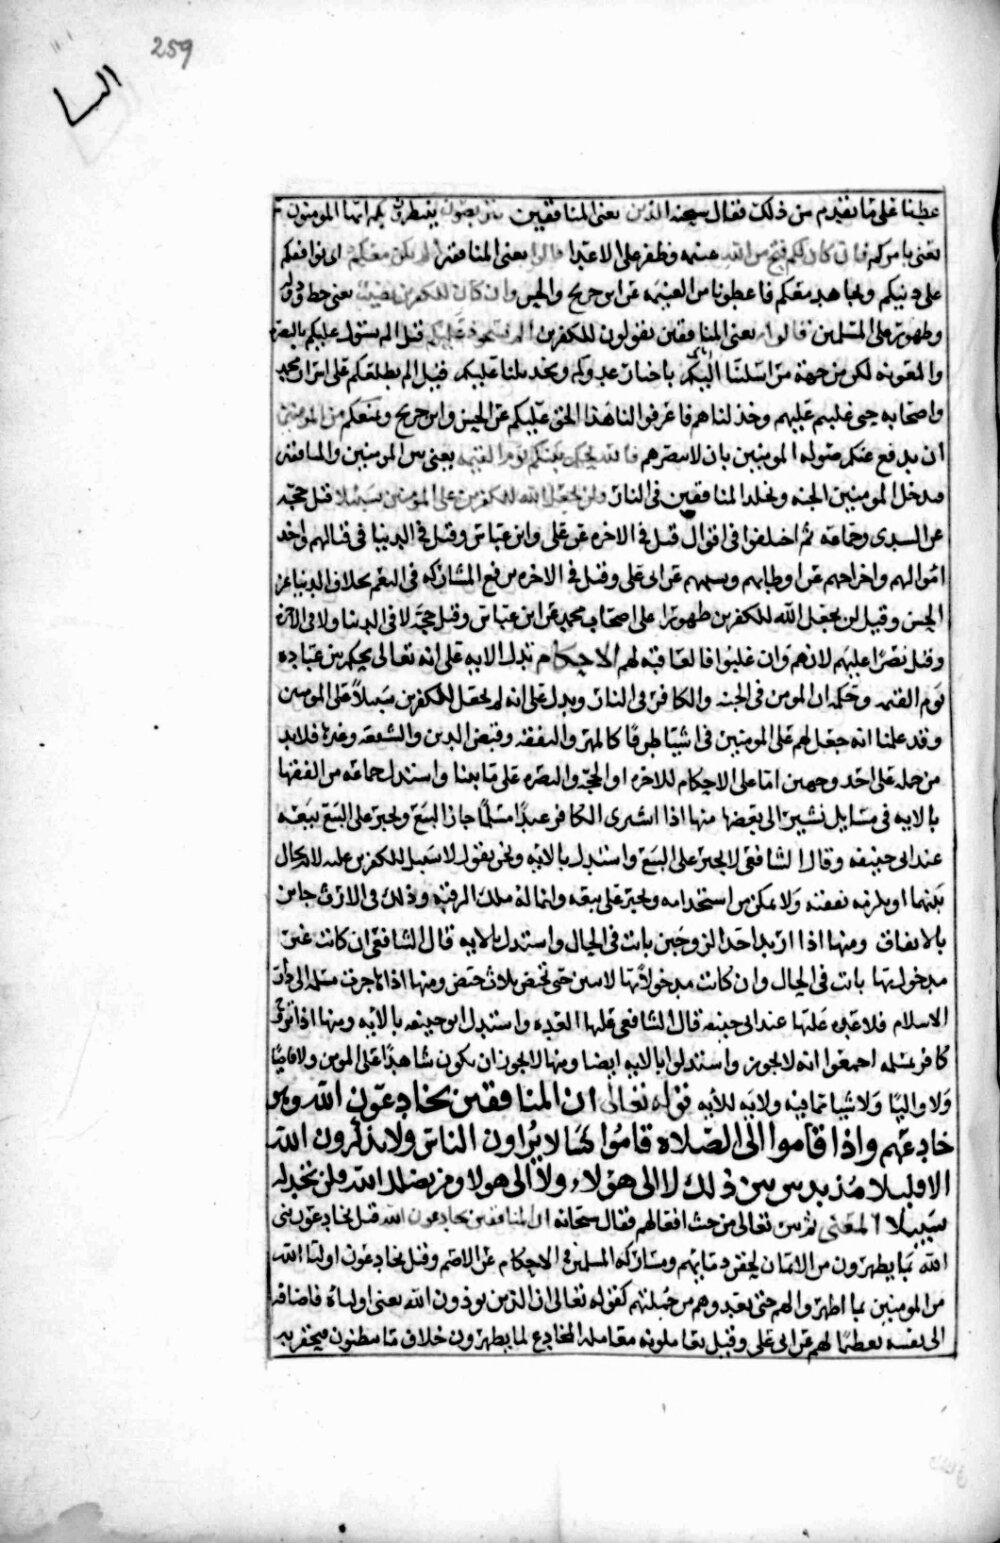 259
النسا
عطفا على ما تقدم من ذلك فقال سبحنه الذين يعنى المنافقين يتربصون ينتظرون بكم ايها المومنون
يعنى بامركم فان كان لكم فتح من الله غنيمه وظفر على الاعدا قالوا يعنى المنافقين الم نكن معكم اى نوافقكم
على دينكم ونجاهد معكم فاعطونا من الغنيمه عن ابن جريج والحسن وان كان للكفرين نصيب يعنى حظ ودولة
وظهور على المسلمين قالوا يعنى المنافقين يقولون للكفرين الم نستحوذ عليكم قيل الم نستول عليكم بالنصره
والمعونه لكم من جهة مراسلتنا اليكم باخبار عدوكم وتخذيلنا عليكم قيل الم نطلعكم على اسرار محمد
واصحابه حتى غلبتم عليهم وخذلناهم فاعرفوا لنا هذا الحق عليكم عن الحسن وابن جريج ونمنعكم من المومنين
ان ندفع عنكم صوله المومنين بان لا نصرهم فالله يحكم بينكم يوم القيمه يعنى بين المومنين والمنافقين
فيدخل المومنين الجنه ويخلد المنافقين فى النار ولن يجعل الله للكفرين على المومنين سبيلا قيل حجه
عن السدى وجماعه ثم اختلفوا فى اقوال قيل فى الاخره عن على وابن عباس وقيل فى الدنيا فى قتالهم واخذ
اموالهم واخراجهم عن اوطانهم وسبيهم عن ابى على وقيل فى الاخره من نفع المشاركه فى النعم بخلاف الدنيا عن
الحسن وقيل لن يجعل الله للكفرين ظهورا على اصحاب محمد عن ابن عباس وقيل حجه لا فى الدنيا ولا فى الآخره
وقيل نصرا عليهم لانهم وان غلبوا فالعاقبه لهم الاحكام تدل الايه على انه تعالى يحكم بين عباده
يوم القيمه وحكمه ان المومن فى الجنه والكافر فى النار ويدل على انه لم يجعل للكفرين سبيلا على المومنين
وقد علمنا انه جعل لهم على المومنين فى اشيا طرقا كالمهر والنفقه وقبض الدين والشفعه وغيرها فلا بد
من حمله على احد وجهين اما على الاحكام للاخره او الحجه والنصره على ما بينا واستدل جماعه من الفقها
بالايه فى مسايل نشير الى بعضها منها اذا اشترى الكافر عبدا مسلما جاز البيع ويجبر على البيع ببيعه
عند ابى حنيفه وقال الشافعى لا يجبر على البيع واستدل بالايه ونحن نقول لا سبيل للكفرين عليه لانه يحال
بينهما او يلزمه نفقته ولا يمكن من استخدامه ويجبر على بيعه وانما له ملك الرقبه وذلك فى الارث جايز
بالاتفاق ومنها اذا ارتد احد الزوجين بانت فى الحال واستدل بالايه قال الشافعى ان كانت غير
مدخول بها بانت فى الحال وان كانت مدخولا بها لا تبين حتى تحيض ثلاث حيض ومنها اذا هاجرت مسلمه الى دار
الاسلام فلا عده عليها عند ابى حنيفه قال الشافعى عليها العده واستدل ابو حنيفه بالايه ومنها اذا تزوج
كافر مسلمه اجمعوا انه لا يجوز واستدلوا بالايه ايضا ومنها لا يجوز ان يكون شاهدا على المومن ولا قاضيا
ولا واليا ولا شيا مما فيه ولايه للأيه قوله تعالى ان المنافقين يخادعون الله وهو
خادعهم واذا قاموا الى الصلاة قاموا كسالا يراون الناس ولا يذكرون الله
الا قليلا مذبذبين بين ذلك لا الى هولاء ولا الى هولا ومن يضلل الله فلن تجد له
سبيلا المعنى ثم بين تعالى من خبث افعالهم فقال سبحانه ان المنافقين يخادعون الله قيل يخادعون نبى
الله بما يظهرون من الايمان ليحقن دماءهم ومشاركه المسلمين فى الاحكام عن الاصم وقيل يخادعون اوليا الله
من المومنين بما اظهروا لهم حتى يعدوهم من جملتهم كقوله تعالى ان الذين يوذون الله يعنى اولياه فاضافه
الى نفسه تعظيما لهم عن ابى على وقيل يعاملونه معامله المخادع لما يظهرون خلاف ما يبطنون